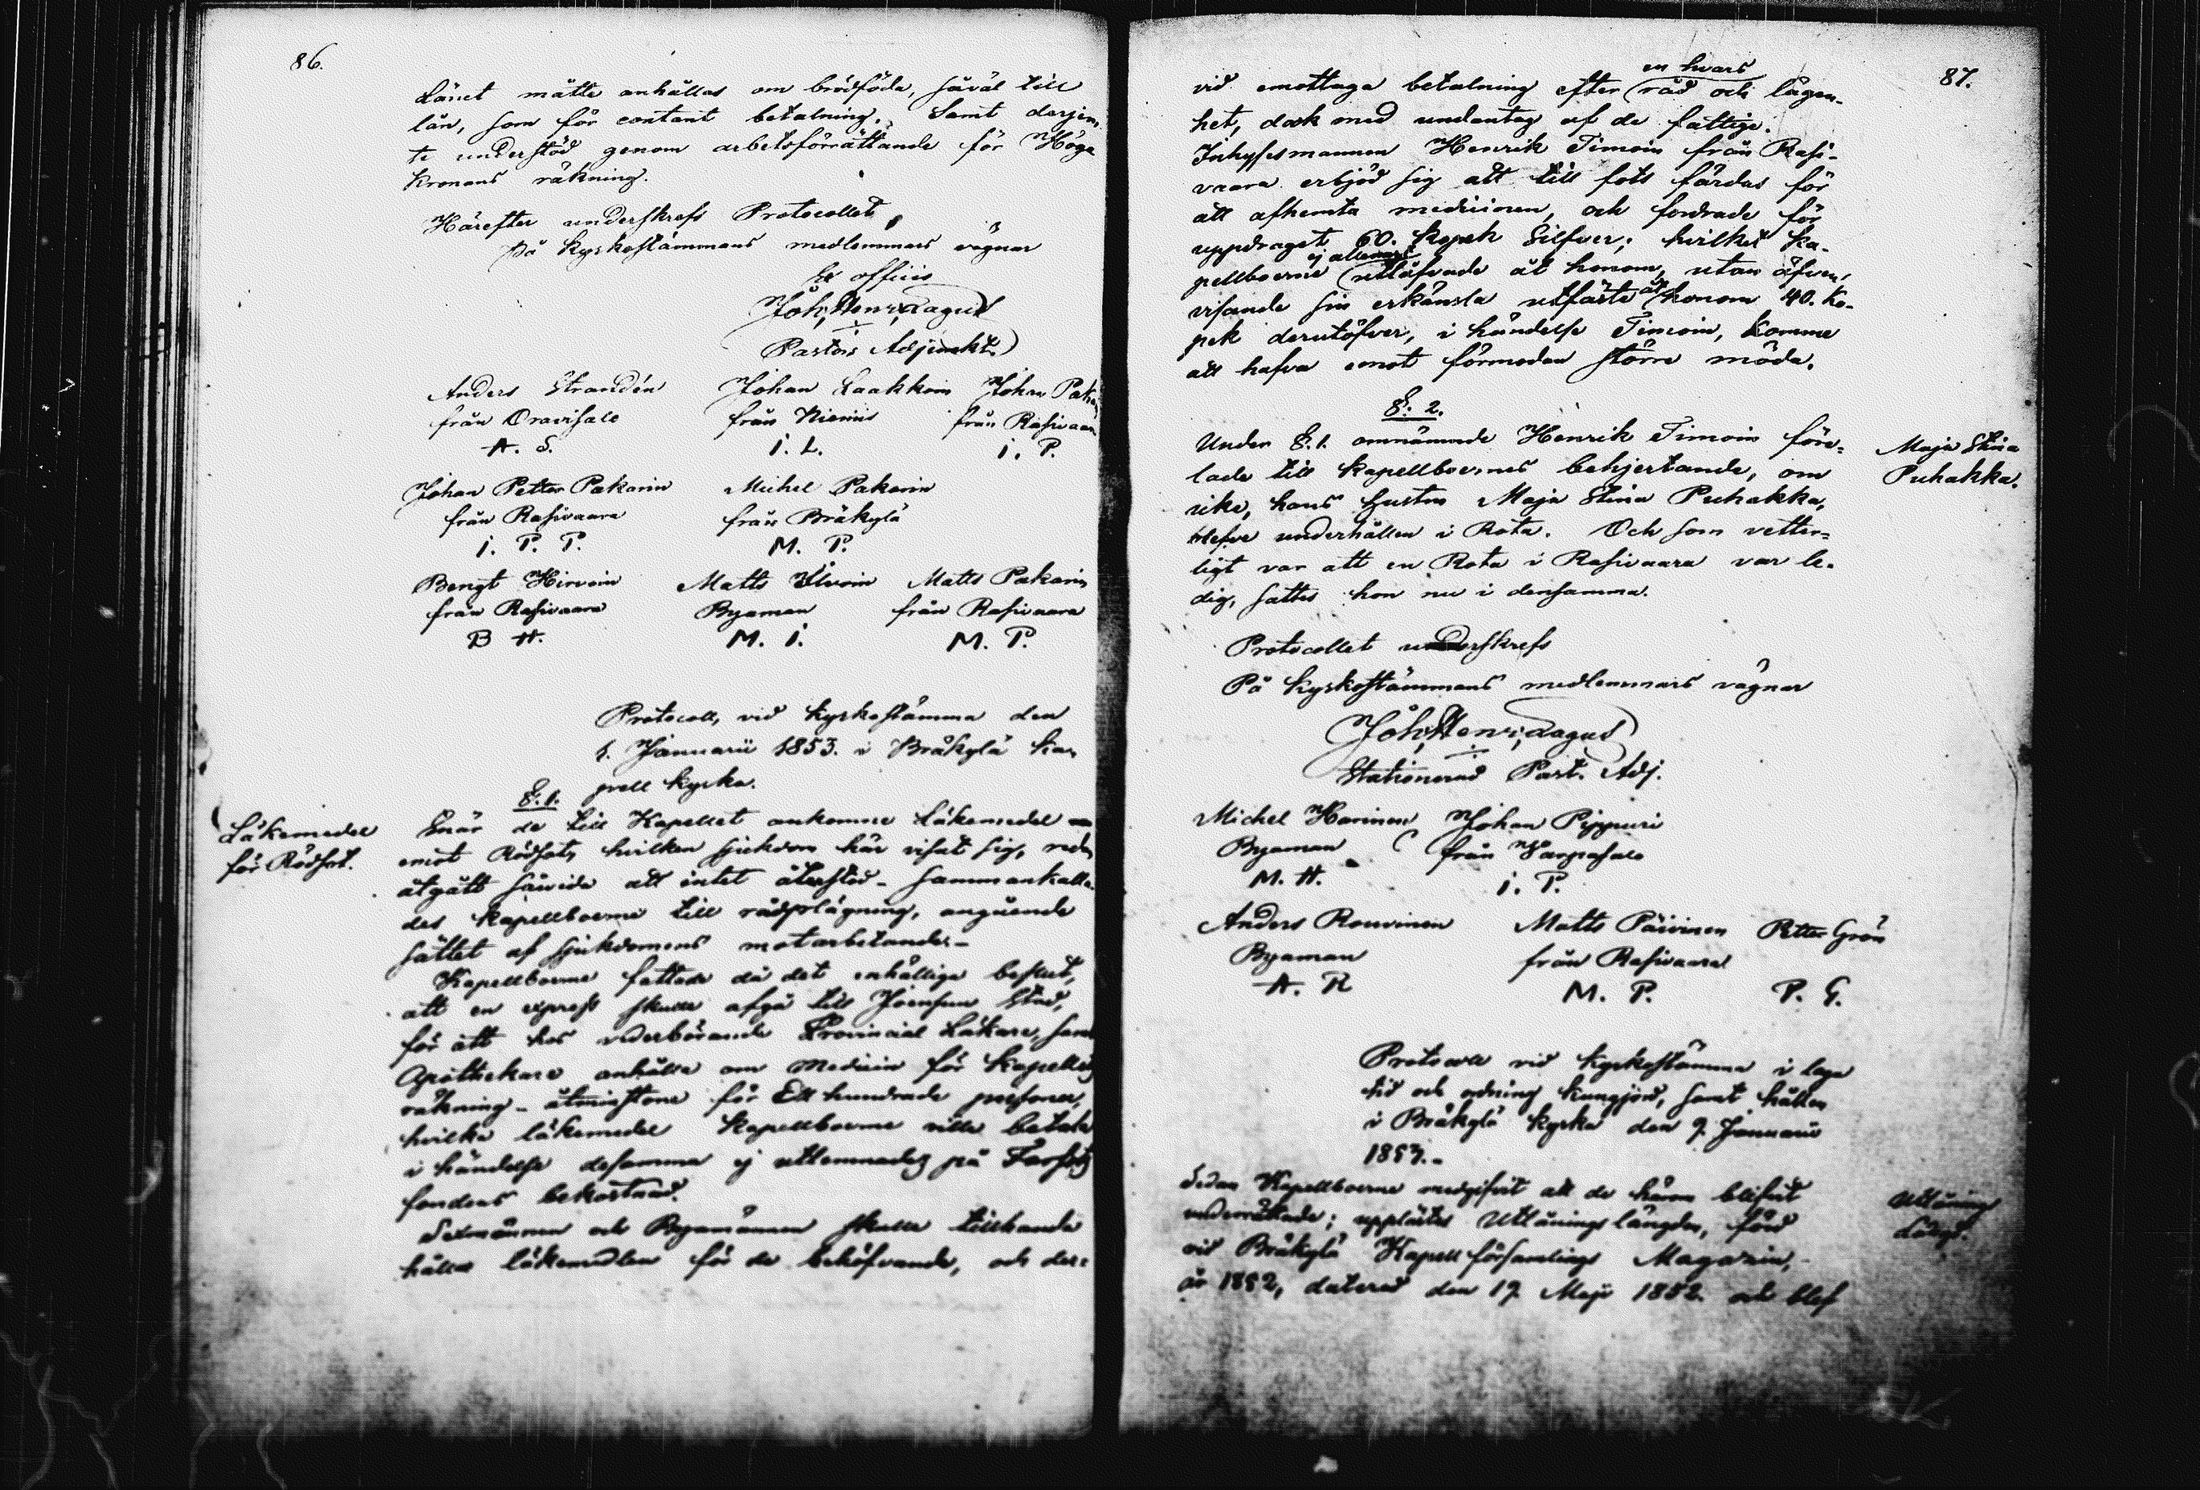 86.
Länet måtte anhållas om brödföda, såväl till
lån, som för contant betalning, Samt derjem,
te understöd genom arbetsförrättande för Höga
Kronans räkning.
Härefter underskrefs Protocollet
På Kyrkostämmans medlemmars vägnar
Ex officio
Joh. Henr. Lagus
Pastors Adjunkt
Anders Strandén Johan Laakkoin Johan
från Oravisalo från Niemis från Rasivaara
A. S. i. L. i. P.
Johan Petter Pakarin Michel Pakarin
från Rasivaara från Bräkylä
i. P. P. M. P.
Bengt Hirvoin Matts Matts Pakarin
från Rasivaara Byaman från Rasivaara
B H. M. i. M. P.
Protocoll, vid Kyrkostämma den
1. Januarii 1853. i Bräkylä Ka,
pell Kyrka.
§: 1.
Läkemedel
för Rödsot.
Enär de till Kapellet ankomne Läkemedel
emot Rödsot, hvilken sjukdom här visat sig, redan
åtgått såvida att intet återstod - sammankalla-
des Kapellboerne till rådplägning, angående
sättet af sjukdomens motarbetande.-
Kapellboerne fattade då det enhälliga beslut,
att en express skulle afgå till Joensuu Stad,
för att hos vederbörande Provincial Läkare, samt
Apothekare anhålla om Medicin för Kapellets
räkning - åtminstone för Ett hundrade personer,
hvilka läkemedel Kapellboerne ville betala
i händelse desamma ej utlemnades på
fondens bekostnad.
Sexmännen och Byamännen skulle tillhanda
hålla läkemedlen för de behöfvande, och der=
87.
en hvars
vid emottaga betalning efter råd och lägen-
het, dock med undantag af de fattige.
Inhysesmannen Henrik Timoin från Rasi-
vaara erbjöd sig att till fots färdas för
att afhemta medicinen, och fordrade för
uppdraget 60. Kopek Silfver; hvilket Ka-
ej allenast
pellboerne utlofvade åt honom, utan äfven,
åt
visande sin erkänsla utfäste honom 40. Ko-
pek derutöfver, i händelse Timoin, komme
att hafva emot förmodan större möda.
§: 2.
Maja Stina
Puhakka.
Under §. 1. omnämnde Henrik Timoin före=
lade till Kapellboernes behjertande, om
icke, hans hustru Maja Stina Puhakka,
blefve underhållen i Rota. Och som vetter=
ligt var att en Rota i Rasivaara var le-
dig, sattes hon nu i densamma.
Protocollet underskrefs
På Kyrkostämmans medlemmars vägnar
Joh. Henr. Lagus
Stationerad Past. Adj.
Michel Harinen Johan Pippuri
Byaman från Varpasalo
M. H. i. P.
Anders Rouvinen Matts Päivinen Petter Grön
Byaman från Rasivaara
A. R M. P. P. G.
Protocoll vid Kyrkostämma i laga
tid och ordning kungjord, samt hållen
i Bräkylä Kyrka den 9. Januarii
1853.-
Utlånings
Längd.
Sedan Kapellboerne medgifvit att de härom blifvit
underrättade; upplästes Utlånings längden, förd
vid Bräkylä Kapell församlings Magazin,
år 1852, daterad den 17. Maji 1852. och blef